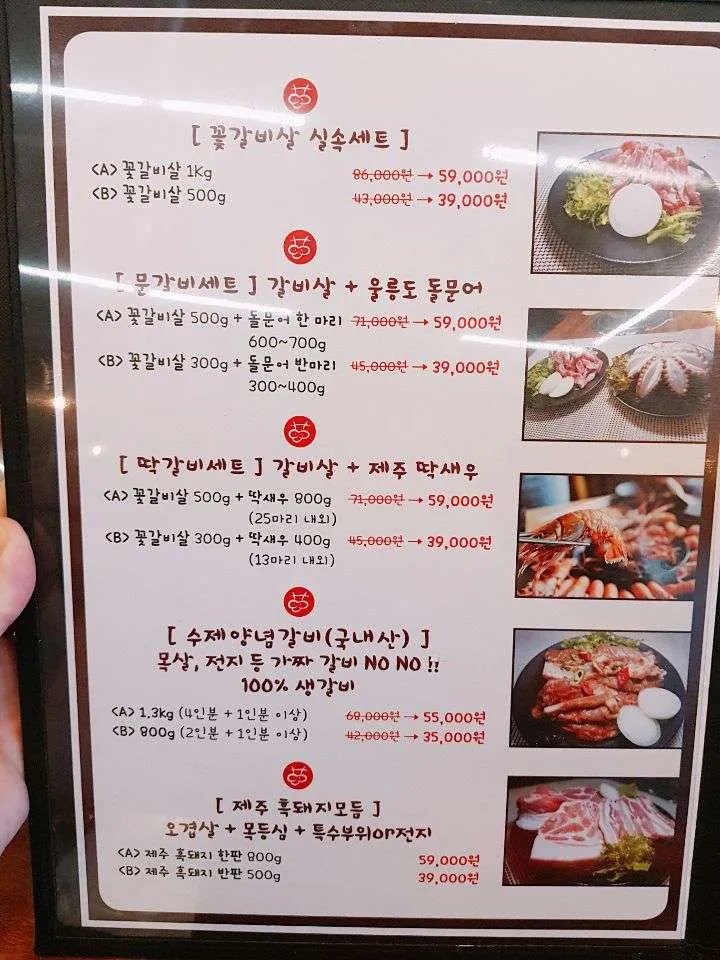 [ 꽃갈비살 실속세트 ]
<A> 꽃갈비살 1Kg 86,000원 → 59,000원
<B> 꽃갈비살 500g 43,000원 → 39,000원
[ 문갈비세트 ] 갈비살 + 울릉도 돌문어
<A> 꽃갈비살 500g + 돌문어 한 마리 71,000원 → 59,000원
600~700g
<B> 꽃갈비살 300g + 돌문어 반마리 45,000원 → 39,000원
300~400g
[ 딱갈비세트 ] 갈비살 + 제주 딱새우
<A> 꽃갈비살 500g + 딱새우 800g 71,000원 → 59,000원
(25마리 내외)
<B> 꽃갈비살 300g + 딱새우 400g 45,000원 → 39,000원
(13마리 내외)
[ 수제양념갈비(국내산) ]
목살, 전지 등 가짜 갈비 NO NO !!
100% 생갈비
<A> 1.3kg (4인분 + 1인분 이상) 68,000원 → 55,000원
<B> 800g (2인분 + 1인분 이상) 42,000원 → 35,000원
[ 제주 흑돼지모듬 ]
오겹살 + 목등심 + 특수부위or전지
<A> 제주 흑돼지 한판 800g 59,000원
<B> 제주 흑돼지 반판 500g 39,000원